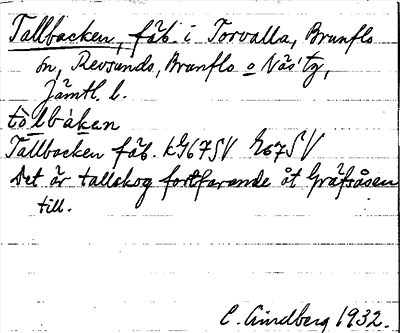 Tallbacken, fäb. i Torvalla, Brunflo
sn, Revsunds, Brunflo o Näs tg,
Jämtl. l.
tòlbàken
Tallbacken fäb. kG67SV G67SV
Det är tallskog fortfarande åt Gräfsåsen
till.
C. Lindberg 1932.